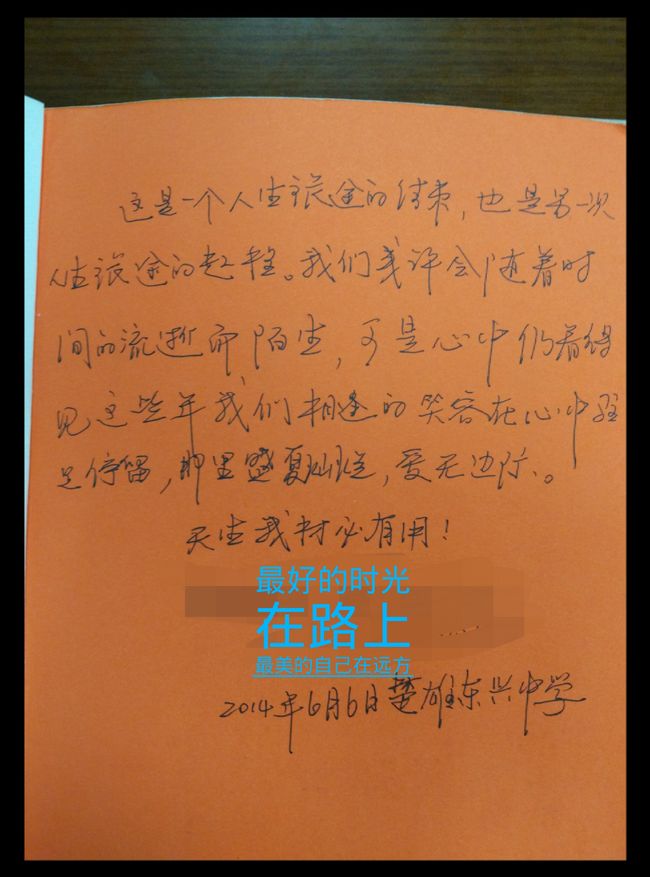 这是一个人生旅途的结束，也是另一次
人生旅途的起程。我们或许会随着时
间的流逝而陌生，可是心中仍看得
见这些年我们相逢的笑容在心中驻
足停留，那里盛夏灿烂，爱无边际。
天生我材必有用！
最好的时光
在路上
最美的自己在远方
2014年6月6日楚雄东兴中学